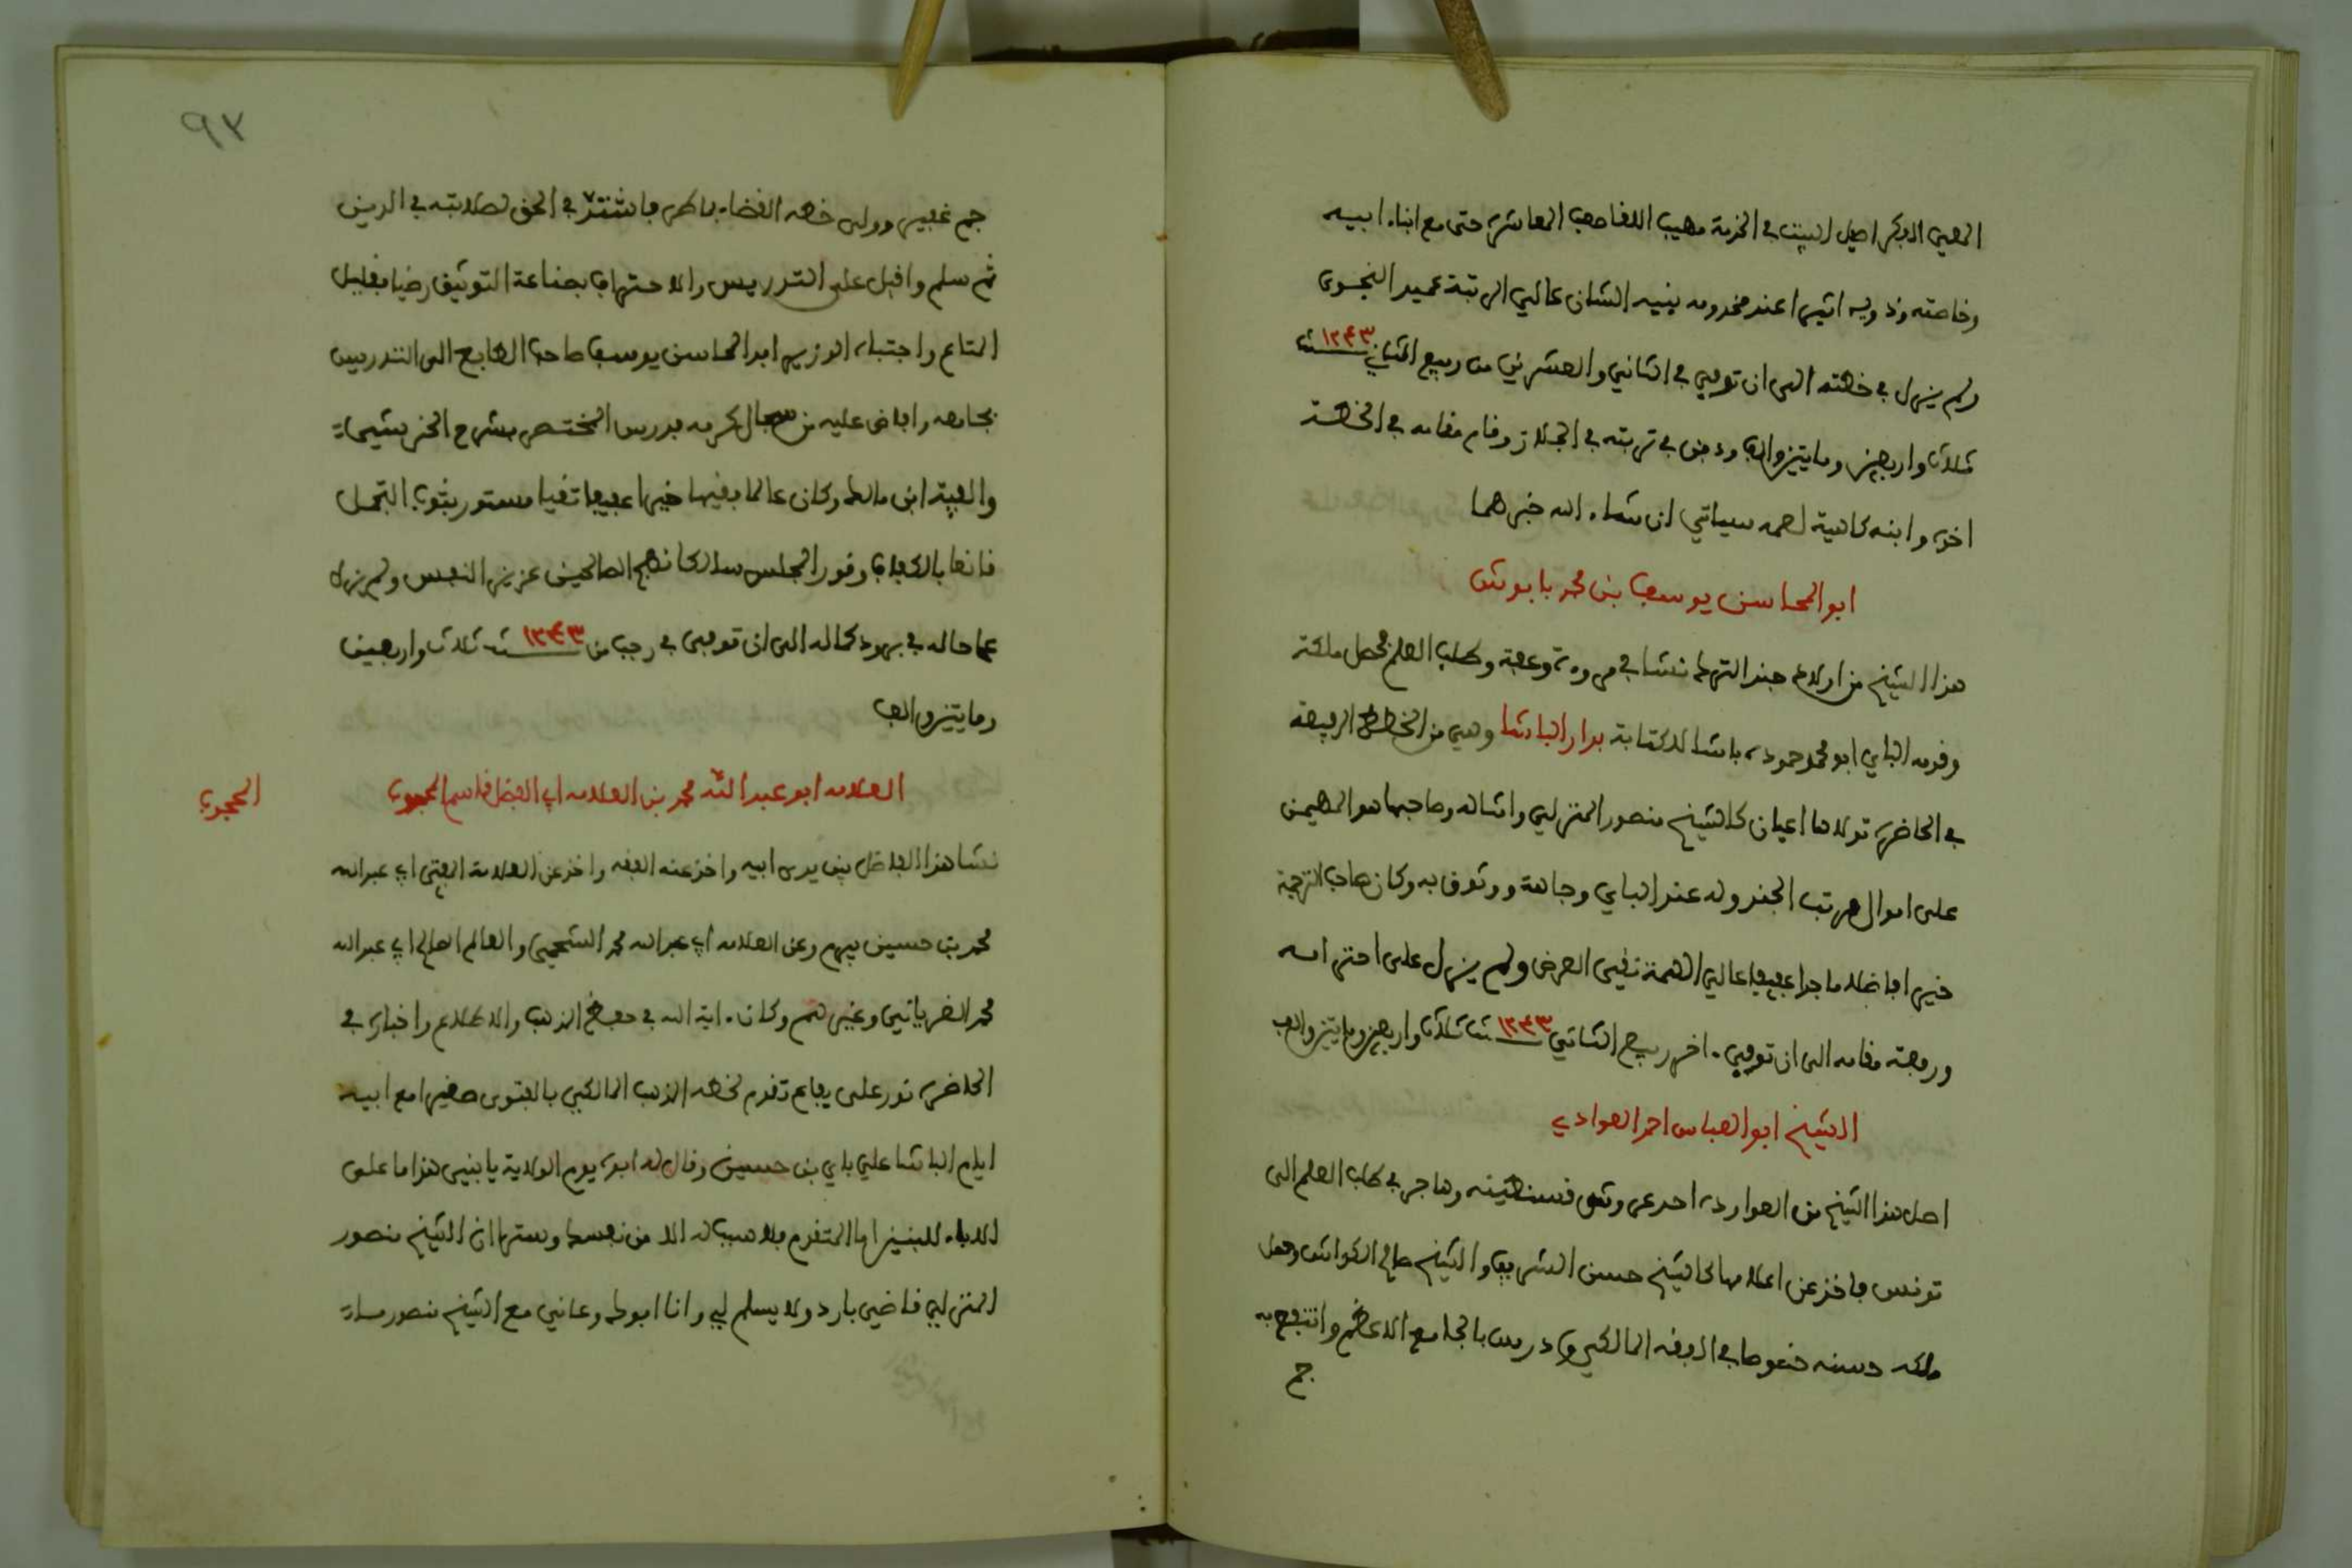 المعين الفكر اصيل البيت في الخدمة مهيب اللقا صعب المعاشرة حتى مع ابناء ابيه
وخاصته وذويه اثيرا عند مخدومه نبيه الشان عالي الرتبة عميد النجوى
ولم يزل في خطته الى ان توفي في الثاني والعشرين من ربيع الثاني سنة ١٢٤٣
ثلاث واربعين ومايتين والف ودفن في تربته في الجلاز وقام مقامه في الخطة
اخوه وابنه كاهية لعمه سياتي ان شاء الله خبرهما
ابو المحاسن يوسف بن محمد بابوش
هذا الشيخ من اولاد جند الترك نشا في مروءة وعفة وطلب العلم فحصل ملكة
وقدمه الباي ابو محمد حموده باشا للكتابة بدار الباشا وهي من الخطط الرفيعة
في الحاضرة تولاها اعيان كالشيخ منصور المنزلي وامثاله وصاحبها هو المهيمن
على اموال مرتب الجند وله عند الباي وجاهة ووثوق به وكان صاحب الترجمة
خيرا فاضلا ماجدا عفيفا عالي الهمة نقي العرض ولم يزل على احترامه
ورفعة مقامه الى ان توفي اخر ربيع الثاني ١٢٤٣ سنة ثلاث واربعين ومايتين والف
الشيخ ابو العباس احمد العوادي
اصل هذا الشيخ من العواردة احد عروش قسنطينه وهاجر في طلب العلم الى
تونس فاخذ عن اعلامها كالشيخ حسن الشريف والشيخ صالح الكواش وحصل
ملكه حسنه خصوصا في الفقه المالكي ودرس بالجامع الاعظم وانتفع به
جم
٩٣
جم غفير وولى خطه القضاء بباطن فاشتد في الحق لصلابته في الدين
ثم سلم واقبل على التدريس والاحتراف بصناعة التوثيق رضيا بقليل
المتاع واجتباه الوزير ابو المحاسن يوسف صاحب الطابع الى التدريس
بجامعه وافاض عليه من سجال كرمه فدرس المختصر بشرح الخرشي
والفية ابن مالك وكان عالما فقيها خيرا عفيفا تقيا مستور بثوب التجمل
قانعا بالكفاف وقور المجلس سالكا نهج الصالحين عزيز النفس ولم يزل
عا حاله في برود كماله الى ان توفي في رجب من سنة ١٢٤٣ ثلاث واربعين
ومايتين والف
العلامه ابو عبد الله محمد بن العلامه ابي الفضل قاسم المحجوب
المحجوب
نشا هذا الفاضل بين يدي ابيه واخذ عنه الفقه واخذ عن العلامة المفتي ابي عبد الله
محمد بن حسين بيرم وعن العلامه ابي عبد الله محمد الشحمي والعالم الصالح ابي عبد الله
محمد الغرياني وغيرهم وكان اية الله في حفظ المذهب والاطلاع واخباره في
الحاضرة نور على يفاع تقدم لخطه المذهب المالكي بالفتوى صغيرا مع ابيه
ايام الباشا علي باي بن حسين وقال له ابوه يوم الولاية يا بني هذا ما على
الاباء للبنين اما التقدم فلا سبب له الا من نفسك وسترى ان الشيخ منصور
المنزلي قاضي بارد ولا يسلم لي وانا ابوك وعاني مع الشيخ منصور